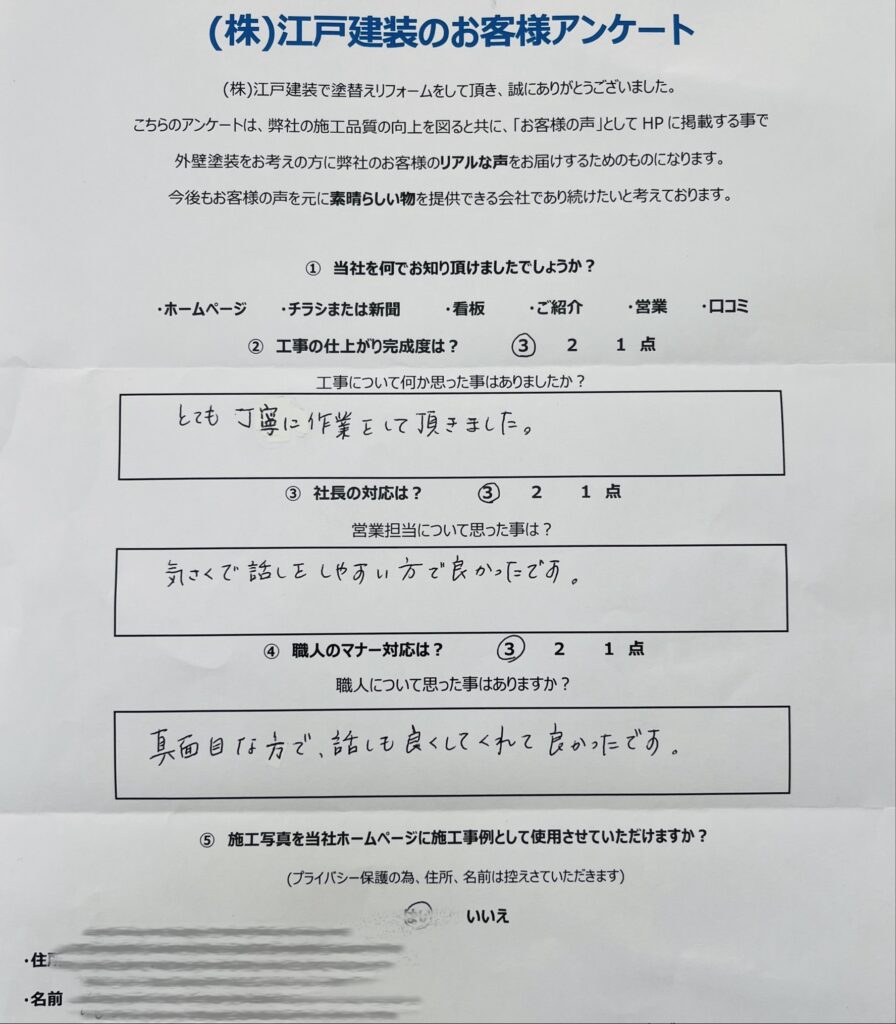 (株)江戸建装のお客様アンケート
(株)江戸建装で塗替えリフォームをして頂き、誠にありがとうございました。
こちらのアンケートは、弊社の施工品質の向上を図ると共に、「お客様の声」として HP に掲載する事で
外壁塗装をお考えの方に弊社のお客様のリアルな声をお届けするためのものになります。
今後もお客様の声を元に素晴らしい物を提供できる会社であり続けたいと考えております。
① 当社を何でお知り頂けましたでしょうか？
・ホームページ ・チラシまたは新聞 ・看板 ・ご紹介 ・営業 ・口コミ
② 工事の仕上がり完成度は？ 3 2 1 点
工事について何か思った事はありましたか？
とても丁寧に作業をして頂きました。
③ 社長の対応は？ 3 2 1 点
営業担当について思った事は？
気さくで話しをしやすい方で良かったです。
④ 職人のマナー対応は？ 3 2 1 点
職人について思った事はありますか？
真面目な方で、話しも良くしてくれて良かったです。
⑤ 施工写真を当社ホームページに施工事例として使用させていただけますか？
(プライバシー保護の為、住所、名前は控えさていただきます)
はい いいえ
・住所
・名前